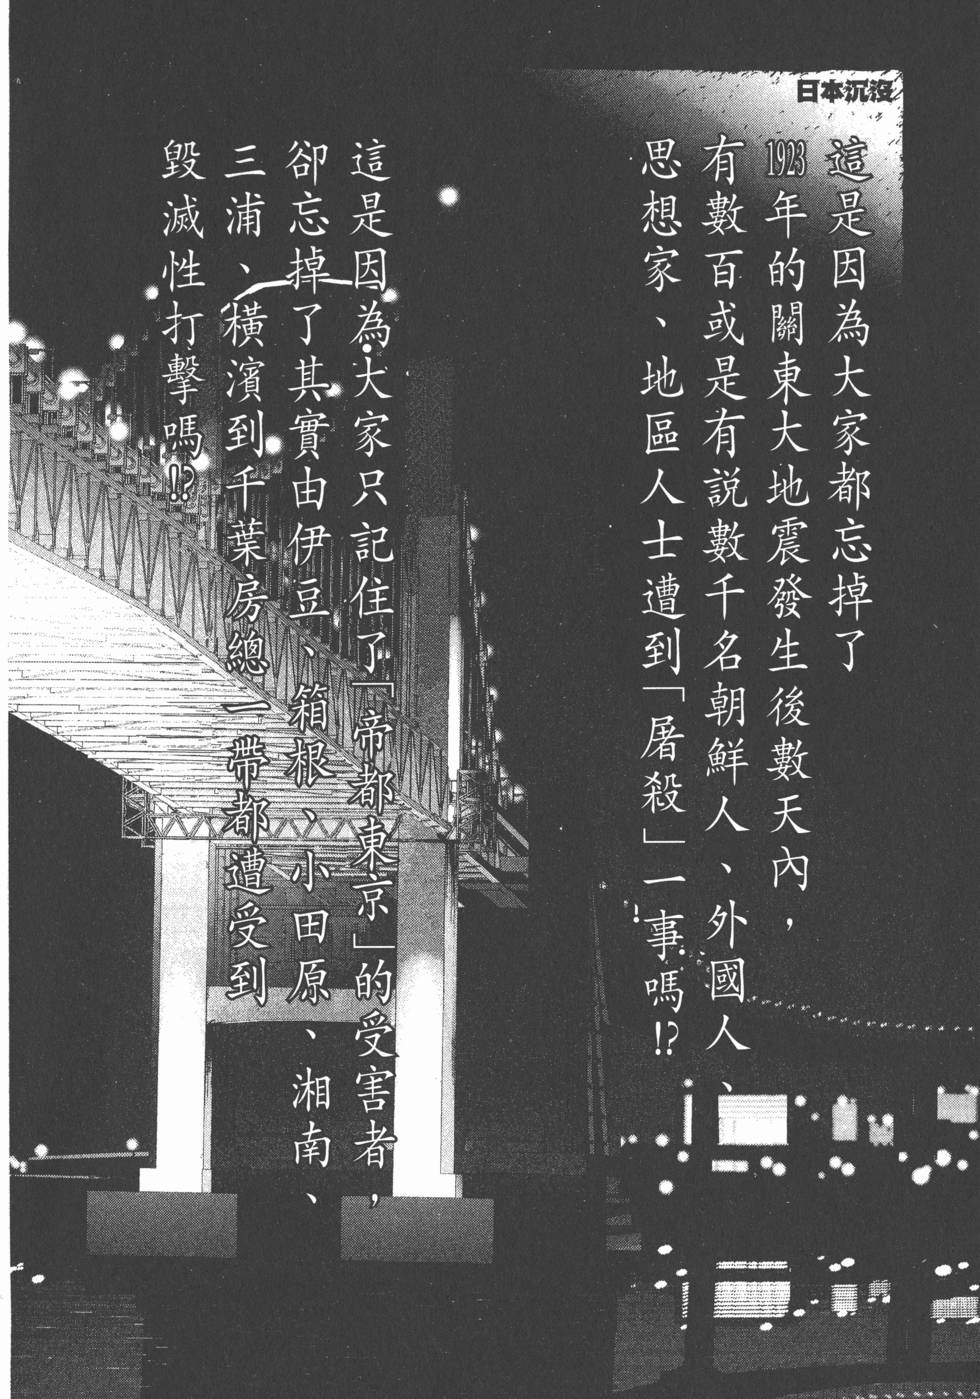 日本沉沒
這是因為大家都忘掉了
1923年的關東大地震發生後數天內，
有數百或是有説數千名朝鮮人、外國人、
思想家、地區人士遭到「屠殺」一事嗎!?
這是因為大家只記住了「帝都東京」的受害者，
卻忘掉了其實由伊豆、箱根、小田原、湘南、
三浦、橫濱到千葉房總一帶都遭受到
毀滅性打擊嗎!?